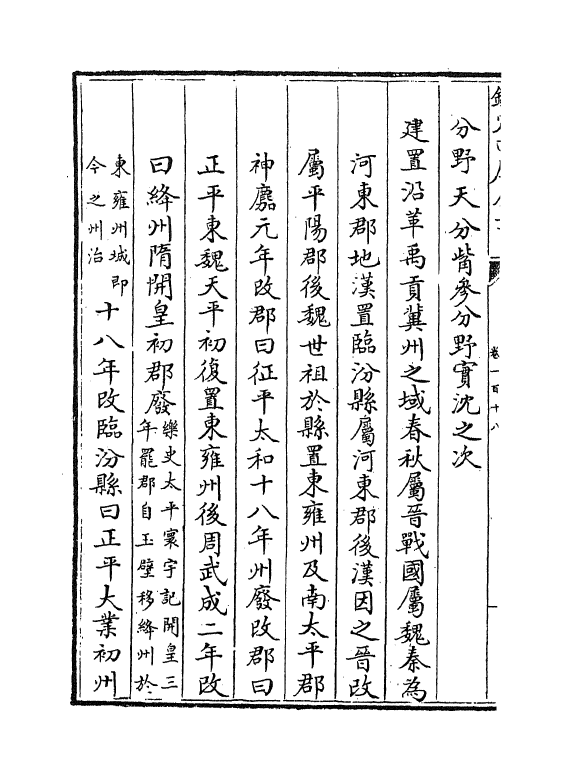 卷一百十八
分野天分觜參分野實沈之次
建置沿革禹貢冀州之域春秋屬晉戰國屬魏秦為
河東郡地漢置臨汾縣屬河東郡後漢因之晉改
屬平陽郡後魏世祖於縣置東雍州及南太平郡
神䴥元年改郡曰征平太和十八年州廢改郡曰
正平東魏天平初復置東雍州後周武成二年改
曰絳州隋開皇初郡廢樂史太平寰宇記開皇三年罷郡自玉壁移絳州於
東雍州城即今之州治十八年改臨汾縣曰正平大業初州